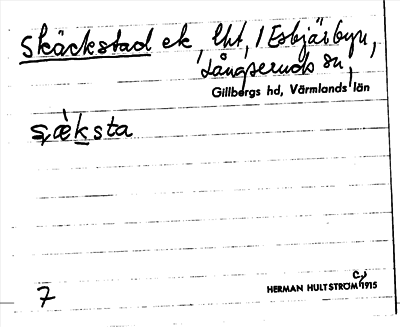 Skäckstad ek, lht, i Esbjärbyn,
Långseruds sn,
Gillbergs hd, Värmlands län
sæ̀ksta
7
HERMAN HULTSTRÖM 1915